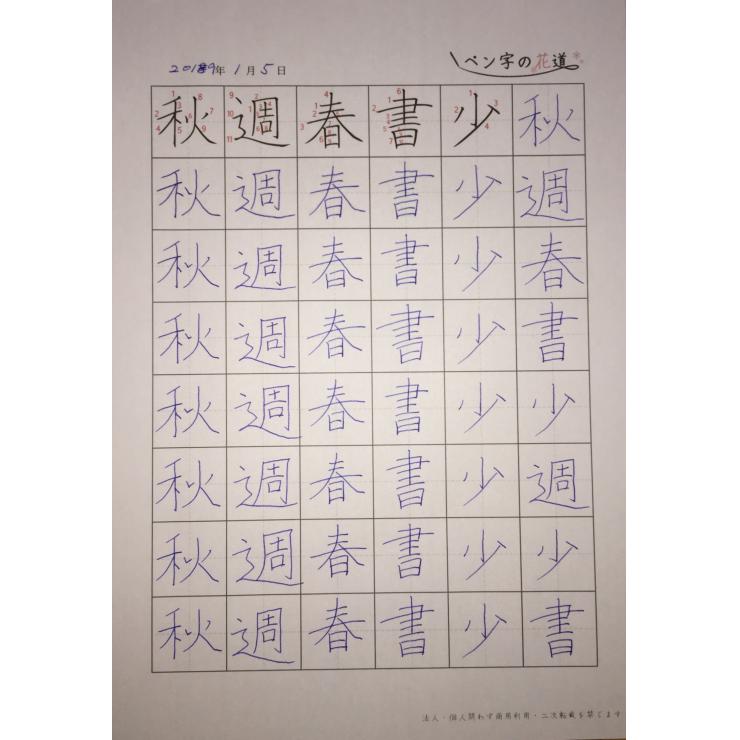 2019年 1月 5日 ペン字の花道
秋 週 春 書 少 秋
秋 週 春 書 少 週
秋 週 春 書 少 春
秋 週 春 書 少 書
秋 週 春 書 少 少
秋 週 春 書 少 週
秋 週 春 書 少 少
秋 週 春 書 少 書
法人・個人問わず商用利用・二次転載を禁じます